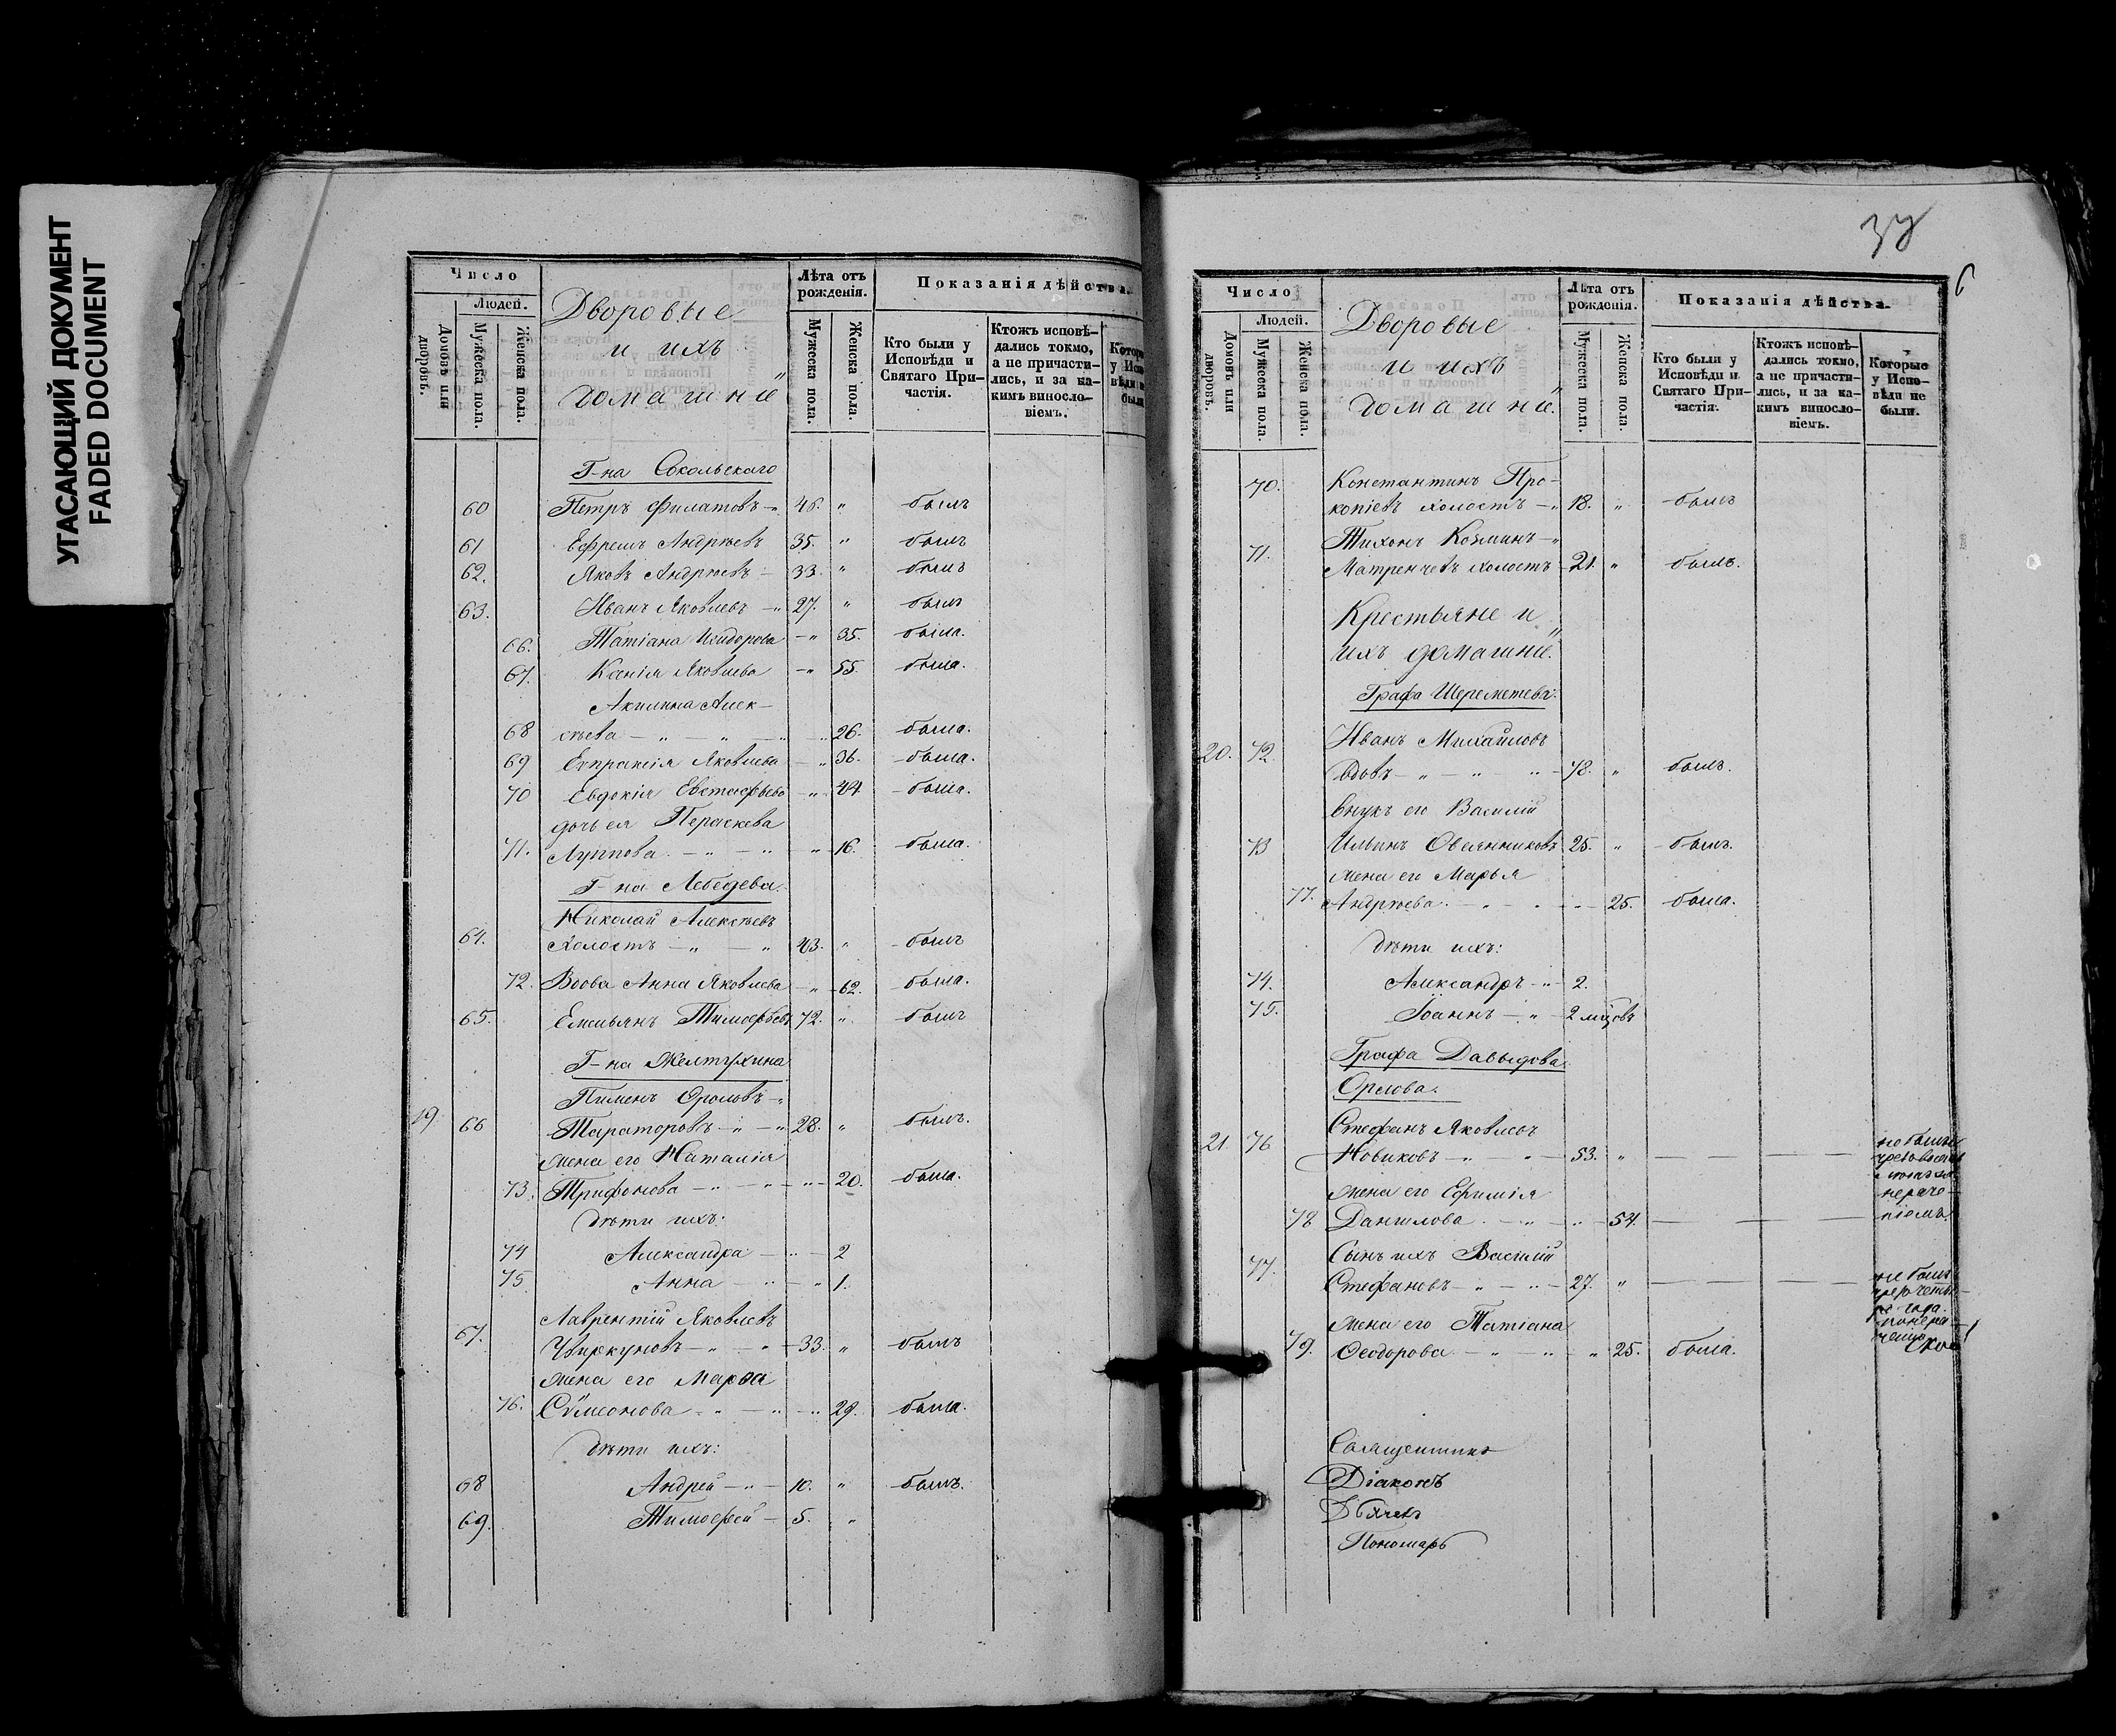 УГАСАЮЩИЙ ДОКУМЕНТ
FADED DOCUMENT
Число
Людей.
Домовъ или дворовъ.
Мужеска пола.
Женска пола.
Дворовые
и ихъ
домашніе
Лѣта отъ рожденія.
Мужеска пола.
Женска пола.
Показанія дѣйства.
Кто были у Исповѣди и Святаго При-
частія.
Ктожъ исповѣ-
дались токмо,
а не причасти-
лись, и за ка-
кимъ винесло-
віемъ.
Г-на Сокольскаго
60 Петръ Филатовъ 46. " былъ
61 Ефремъ Андрѣевъ 35. " былъ
62. Яковъ Андрѣевъ 33. " былъ
63. Иванъ Яковлевъ 27. " былъ
66. Татіана Исидорова " 35. была.
67. Ксенія Яковлева " 55. была.
Акилина Алек-
68 сѣева " 26. была.
69 Евпраксія Яковлева " 36. была.
70 Евдокія Евстафьева " 44 была.
дочь ея Параскева
71. Луппова " 16. была.
Г-на Лебедева.
Николай Алексѣевъ
64. холостъ 43. " былъ
72. Вдова Анна Яковлева " 62. была.
65. Емельянъ Тимофѣевъ 72. " былъ
Г-на Желтухина
Пименъ Фроловъ
19. 66 Тараторовъ 28. " былъ.
жена его Наталія
73. Трифонова " 20. была.
дѣти ихъ:
74 Александра " 2
75. Анна " 1.
Лаврентій Яковлевъ
67. Чвиркуновъ 33. " былъ
жена его Марѳа
76. Сѵмеонова " 29. была.
дѣти ихъ:
68 Андрей 10. " былъ.
69. Тимофей 5. "
37
6
Число
Людей.
Домовъ или дворовъ.
Мужеска пола.
Женска пола.
Дворовые
и ихъ
домашніе.
Лѣта отъ рожденія.
Мужеска пола.
Женска пола.
Показанія дѣйства.
Кто были у
Исповѣди и
Святаго При-
частія.
Ктожъ исповѣ-
дались токмо,
а не причасти-
лись, и за ка-
кимъ винесло-
віемъ.
Которые
у Испо-
вѣди не
были.
70. Константинъ Про-
копіевъ холостъ 18. " былъ
71. Тихонъ Козминъ
холостъ 21. " былъ.
Крестьяне и
ихъ домашніе.
Графа Шереметевъ.
20. 72. Иванъ Михайловъ
вдовъ 78. " былъ.
внукъ его Василій
73 Ильинъ Овсянниковъ 25. " былъ.
жена его Марья
77. Андрѣева " 25. была.
дѣти ихъ:
74. Александръ 2.
75. Іоаннъ 2 мцовъ
Графа Давыдова
Орлова.
Стефанъ Яковлевъ
21. 76 Новиковъ 53. "
жена его Ефимія
78 Данилова " 54.
Сынъ ихъ Василій
77. Стефановъ 27. "
не былъ
жена его Татіана
79. Ѳеодорова " 25. была.
Священникъ
Діаконъ
Дьячекъ
Пономарь